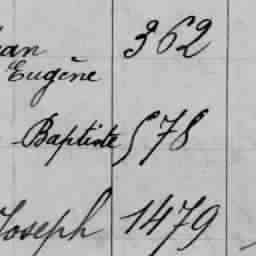 ean 362
Eugène
-Baptiste 578
Joseph 1479